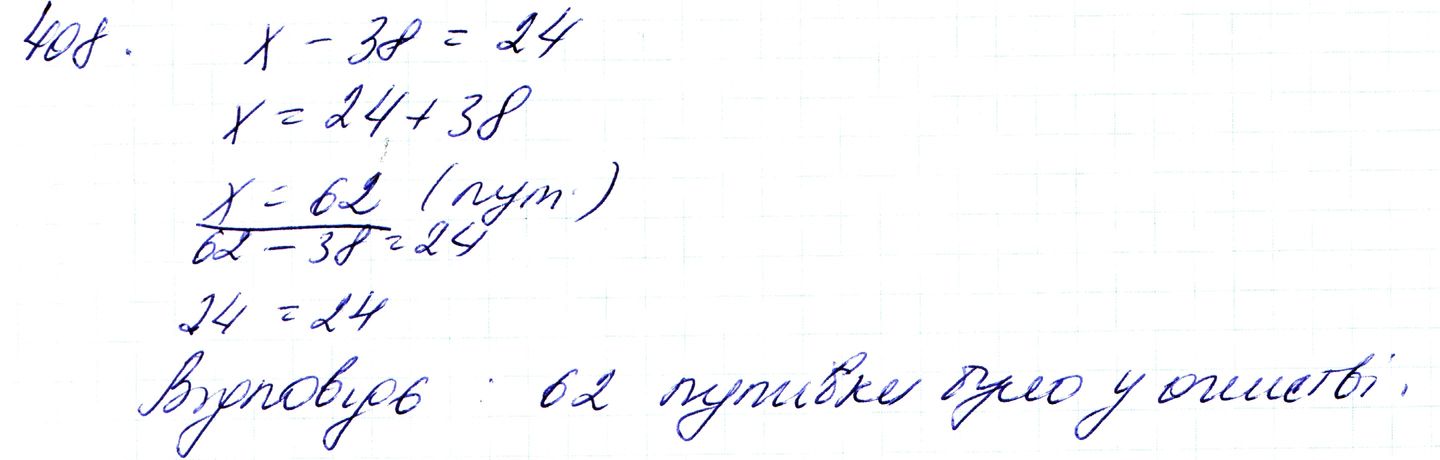 408. x - 38 = 24
x = 24 + 38
x = 62 (пут.)
62 - 38 = 24
24 = 24
Відповідь: 62 путівки було у